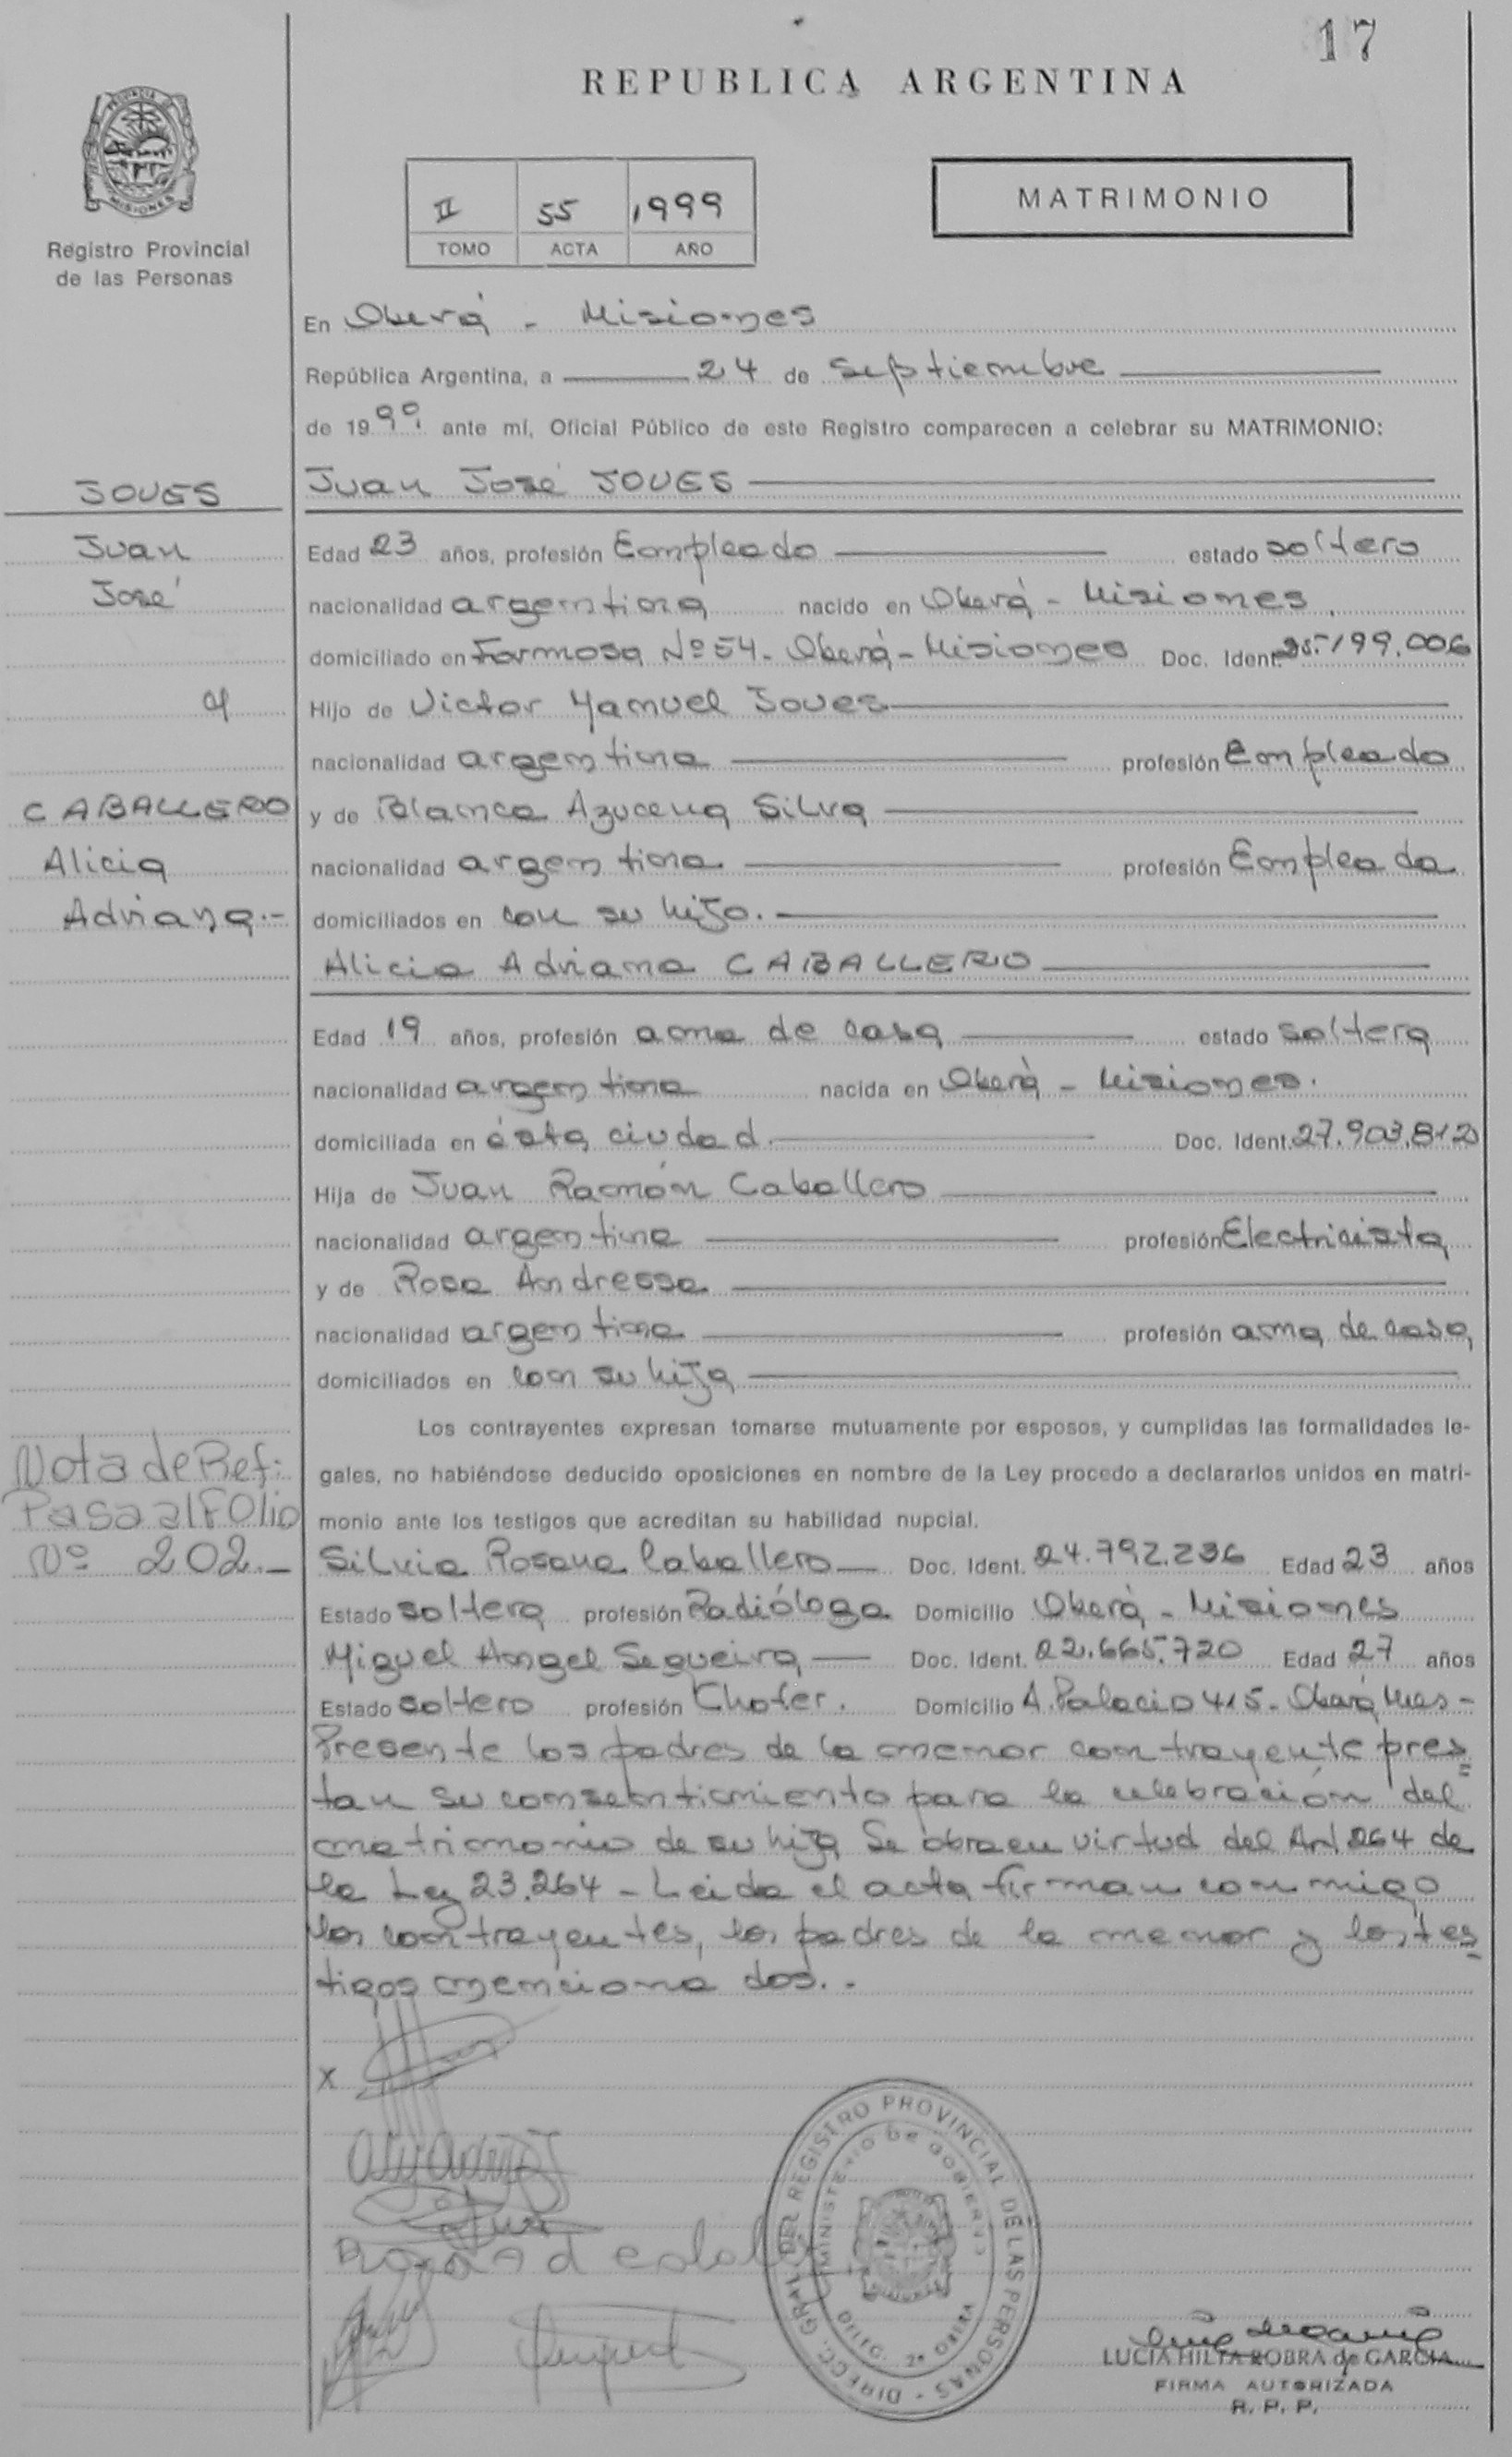 17
REPUBLICA ARGENTINA
PROVINCIA DE
MISIONES
Registro Provincial
de las Personas
II 55 1999
TOMO ACTA AÑO
MATRIMONIO
En Oberá - Misiones
República Argentina, a 24 de Septiembre
de 1999 ante mí, Oficial Público de este Registro comparecen a celebrar su MATRIMONIO:
JOVES
Juan José JOVES
Juan
Edad 23 años, profesión Empleado estado soltero
José
nacionalidad argentina nacido en Oberá - Misiones
domiciliado en Formosa Nº 54 - Oberá - Misiones Doc. Ident. 25.199.006
y
Hijo de Victor Manuel Joves
nacionalidad argentina profesión Empleado
CABALLERO
y de Blanca Azucena Silva
Alicia
nacionalidad argentina profesión Empleada
Adriana.-
domiciliados en con su hijo.
Alicia Adriana CABALLERO
Edad 19 años, profesión ama de casa estado soltera
nacionalidad argentina nacida en Oberá - Misiones.
domiciliada en ésta ciudad. Doc. Ident. 27.903.812
Hija de Juan Ramón Caballero
nacionalidad argentina profesión Electricista
y de Rosa Andressa
nacionalidad argentina profesión ama de casa
domiciliados en con su hija
Los contrayentes expresan tomarse mutuamente por esposos, y cumplidas las formalidades le-
Nota de Ref:
gales, no habiéndose deducido oposiciones en nombre de la Ley procedo a declararlos unidos en matri-
Pasa al FOlio
monio ante los testigos que acreditan su habilidad nupcial.
Nº 202.-
Silvia Rosana Caballero Doc. Ident. 24.792.236 Edad 23 años
Estado soltera profesión Radióloga Domicilio Oberá - Misiones
Miguel Angel Sequeira Doc. Ident. 22.665.720 Edad 27 años
Estado soltero profesión Chofer. Domicilio A. Palacio 415 - Oberá Mes -
Presente los padres de la menor contrayente pres=
tan su consentimiento para la celebración del
matrimonio de su hija Se obra en virtud del Art 264 de
la Ley 23.264 - Leida el acta firman conmigo
los contrayentes, los padres de la menor y los tes=
tigos mencionados. -
x
DIRECC. GRAL. DEL REGISTRO PROVINCIAL DE LAS PERSONAS -
MINISTERIO DE GOBIERNO
DELEG. 2ª OBERA
LUCIA HILTA ROBRA de GARCIA
FIRMA AUTORIZADA
R. P. P.